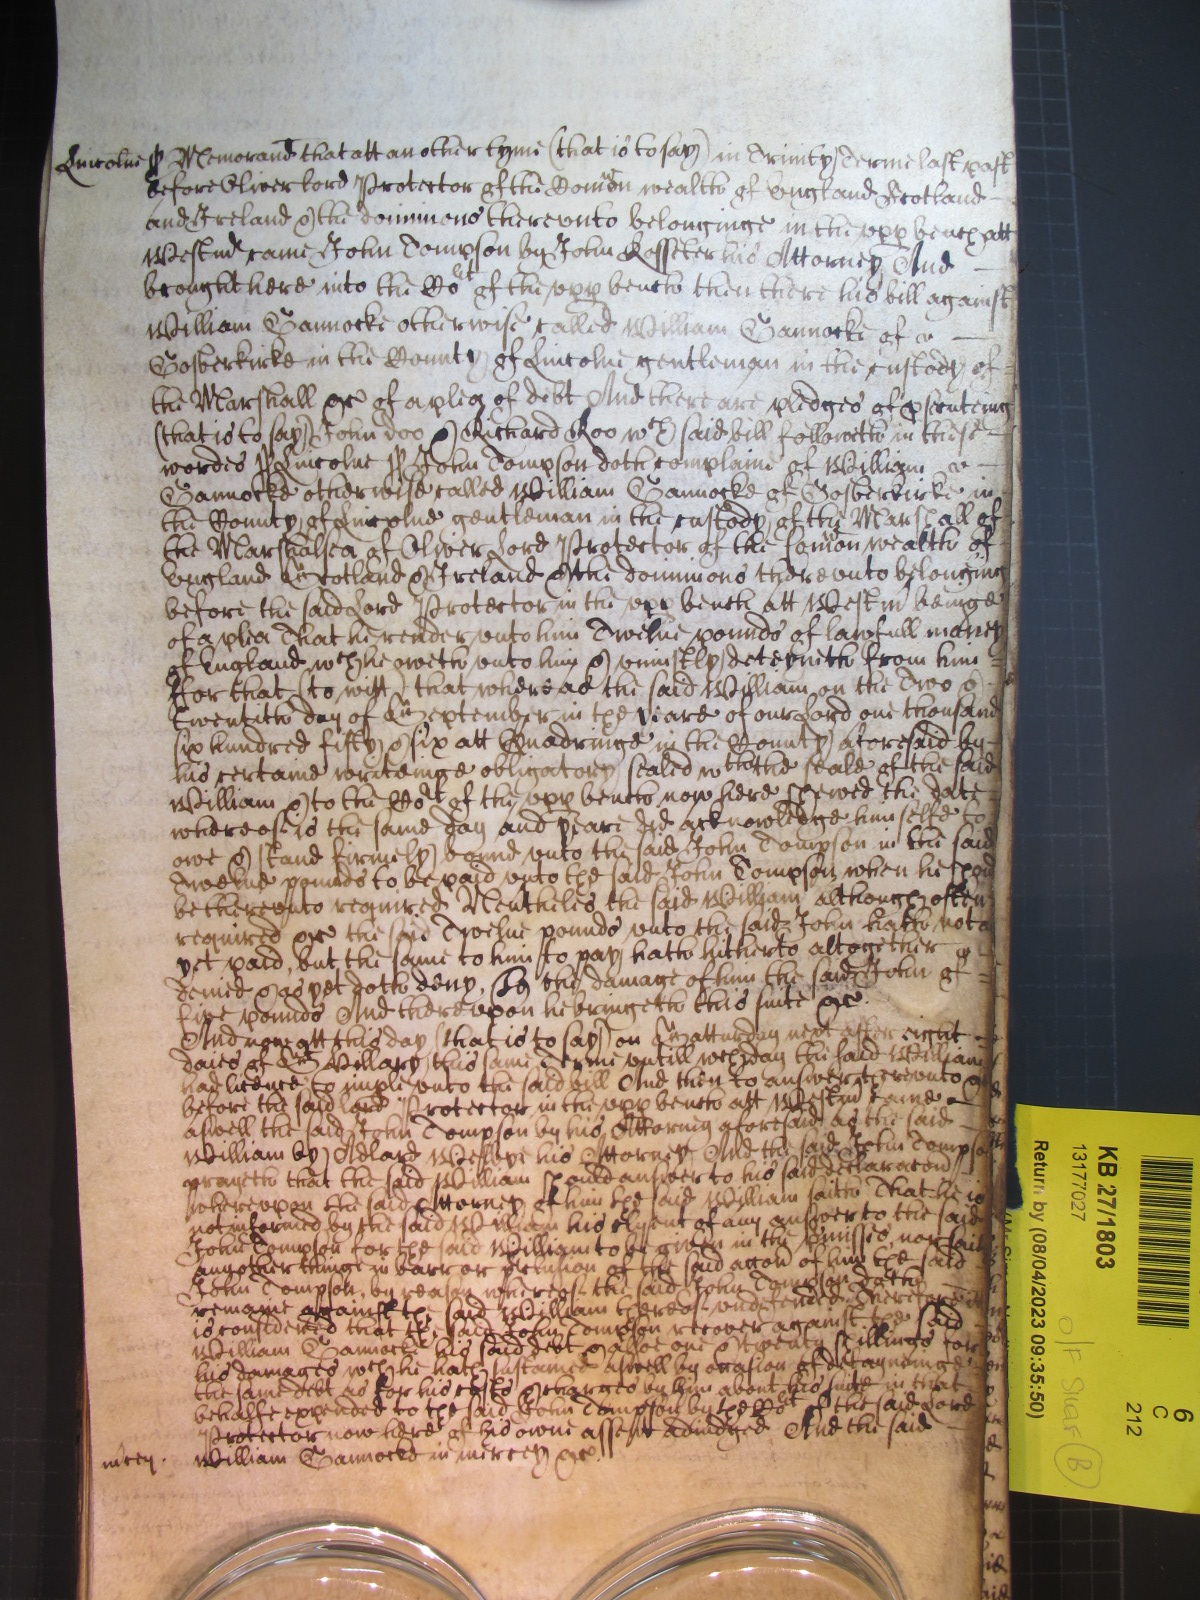 Lincolne ss Memorand that att an other tyme (that is to say) in Trinity Terme last past
before Oliver lord Protector of the Comon wealth of England Scotland
and Ireland & the dominions thereunto belonginge in the upp bench att
Westm came John Tompson by John Rosseter his Attorney And
brought here into the Cort of the upp bench then there his bill against
William Gannocke otherwise called William Gannocke of
Gosberkirke in the County of Lincolne gentleman in the custody of
the Marshall &c of a plea of debt And there are pledges of psecuteing
(that is to say) John Doo & Richard Roo wch said bill followeth in these
wordes ss Lincolne ss John Tompson doth complaine of William
Gannocke otherwise called William Gannocke of Gosberkirke in
the County of Lincolne gentleman in the custody of the Marshall of
the Marshalsea of Oliver Lord Protector of the Comon wealth of
England Scotland & Ireland & the dominions thereunto belonging
before the said Lord Protector in the upp bench att Westm beinge
of a plea That he render unto him Twelve pounds of lawfull money
of England wch he oweth unto him & uniustly deteyneth from him
For that (to witt) that whereas the said William on the Two &
twentith day of September in the yeare of our Lord one thousand
six hundred fifty & six att Quadringe in the County aforesaid by
his certaine writeinge obligatory sealed wth the seale of the said
William & to the Cort of the upp bench now here shewed the date
whereof is the same day and yeare did acknowledge himselfe to
owe & stand firmely bound unto the said John Tompson in the said
Twelve pounds to be paid unto the said John Tompson when he shoud
be thereunto required Neutheles the said William although often
required &c the said Twelve pounds unto the said John hath not
yet paid, but the same to him to pay hath hitherto altogether
denied & as yet doth deny, To the damage of him the said John of
five pounds And thereupon he bringeth this suite &c.
And nowe att this day (that is to say) on Satturday next after eight
daies of St Hillary this same Terme untill wch day the said William
had licence to imple unto the said bill And then to answer thereunto &c
before the said lord Protector in the upp bench att Westm came
aswell the said John Tompson by his Attorney aforesaid as the said
William by Adlard his Attorney And the said John Tompson
prayeth that the said William should answer to his said declaracon
whereupon the said Attorney of him the said William saith That he is
not informed by the said William his clyent of any answer to the said
John Tompson for the said William to be given in the pmisses, nor saith
any other thinge in barr or pclusion of the said accon of him the said
John Tompson, by reason whereof the said John Tompson
remaine against the said William thereof undefended Therefore it
is considered that the said John Tompson recover against the said
William Gannocke his said debt & alsoe one & twenty shillings for
his damages wch he hath sustained aswell by occasion of detayneinge
the same debt as for his costs & charges by him about his suite in that
behalfe expended to the said John Tompson by the Cort of the said Lord
Protector now here of his owne assent adiudged And the said
mercy. William Gannocke in mercy &c.
KB 27/1803
13177027
Return by (08/04/2023 09:35:50)
6
C
212
O/F Staff B